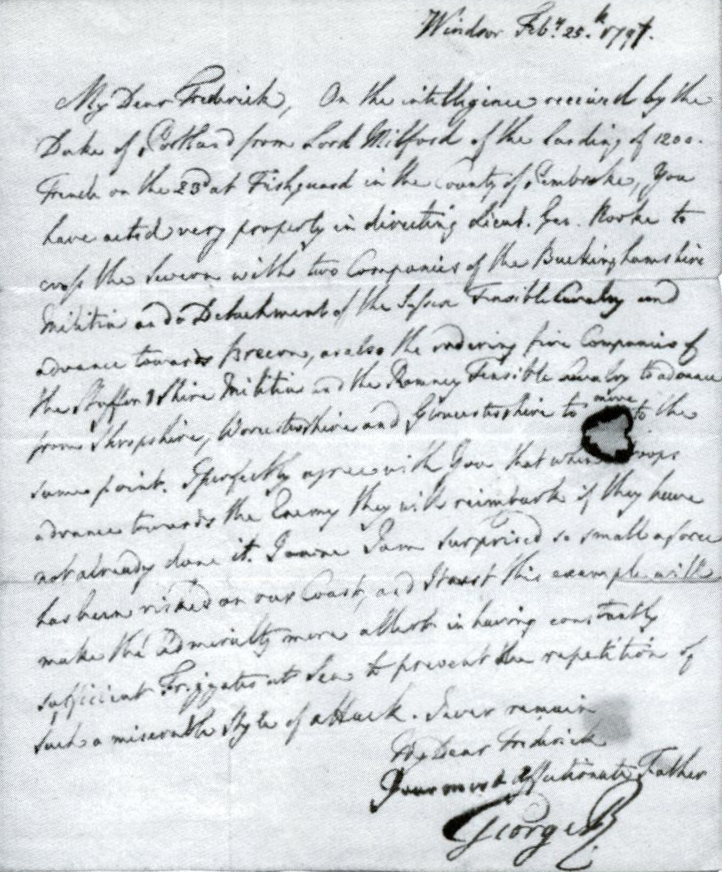 Windsor Feb.y 25.th 1797.
My Dear Frederick, On the intelligence received by the
Duke of Portland from Lord Milford of the landing of 1200.
French on the 23d at Fishguard in the county of Pembroke, You
have acted very properly in directing Lieut. Gen. Rooke to
cross the Severn with two Companies of the Buckinghamshire
Militia and a Detachment of the Sussex Fensible Cavalry and
advance towards Brecon, as also the ordering five Companies of
the Staffordshire Militia and the Romney Fensible Cavalry to advance
from Shropshire, Worcestershire and Glocestershire to move to the
same point. I perfectly agree with You that when troops
advance towards the Enemy they will reimbark if they have
not already done it. I am surprised so small a force
has been risked on our Coast, and I trust this example will
make the Admiralty more allert in having constantly
sufficient Friggates at Sea to prevent the repetition of
such a miserable style of attack. I ever remain
My Dear Frederick
Your most affectionate Father
George R.